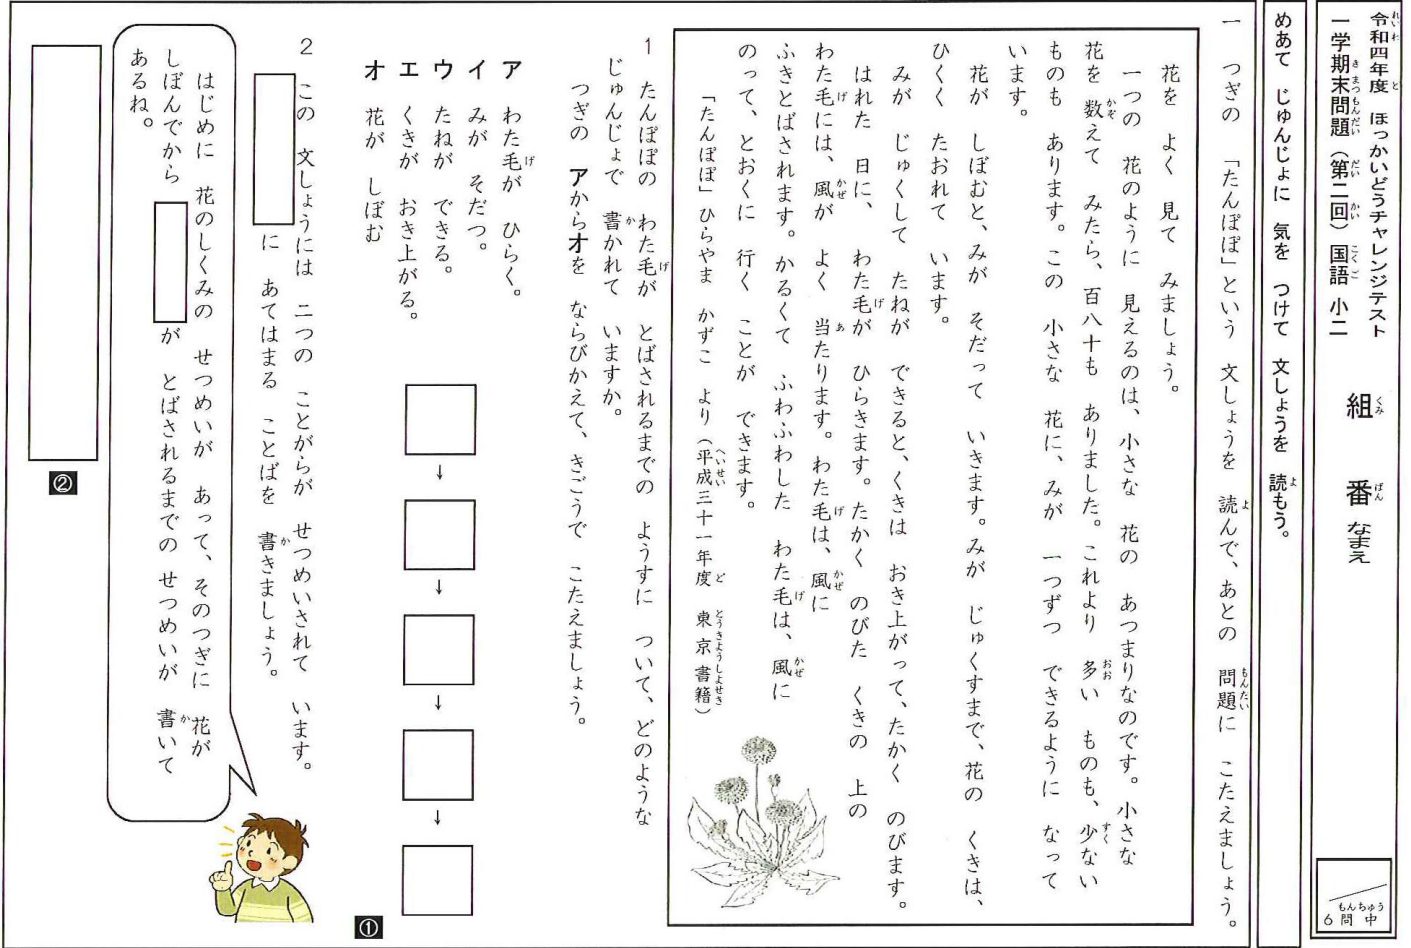 令和四年度 ほっかいどうチャレンジテスト
一学期末問題（第二回）国語 小二
組 番 なまえ
6問中
めあて じゅんじょに 気を つけて 文しょうを 読もう。
一 つぎの 「たんぽぽ」という 文しょうを 読んで、あとの 問題に こたえましょう。
花を よく 見て みましょう。
一つの 花のように 見えるのは、小さな 花の あつまりなのです。小さな
花を 数えて みたら、百八十も ありました。これより 多い ものも、少ない
ものも あります。この 小さな 花に、みが 一つずつ できるように なって
います。
花が しぼむと、みが そだって いきます。みが じゅくすまで、花の くきは、
ひくく たおれて います。
みが じゅくして たねが できると、くきは おき上がって、たかく のびます。
はれた 日に、 わた毛が ひらきます。たかく のびた くきの 上の
わた毛には、風が よく 当たります。わた毛は、風に
ふきとばされます。かるくて ふわふわした わた毛は、風に
のって、とおくに 行く ことが できます。
「たんぽぽ」ひらやま かずこ より（平成三十一年度 東京書籍）
1 たんぽぽの わた毛が とばされるまでの ようすに ついて、どのような
じゅんじょで 書かれて いますか。
つぎの アからオを ならびかえて、きごうで こたえましょう。
ア わた毛が ひらく。
イ みが そだつ。
ウ たねが できる。
エ くきが おき上がる。
オ 花が しぼむ
↓ ↓ ↓ ↓
①
2 この 文しょうには 二つの ことがらが せつめいされて います。
に あてはまる ことばを 書きましょう。
はじめに 花のしくみの せつめいが あって、そのつぎに 花が
しぼんでから が とばされるまでの せつめいが 書いて
あるね。
②